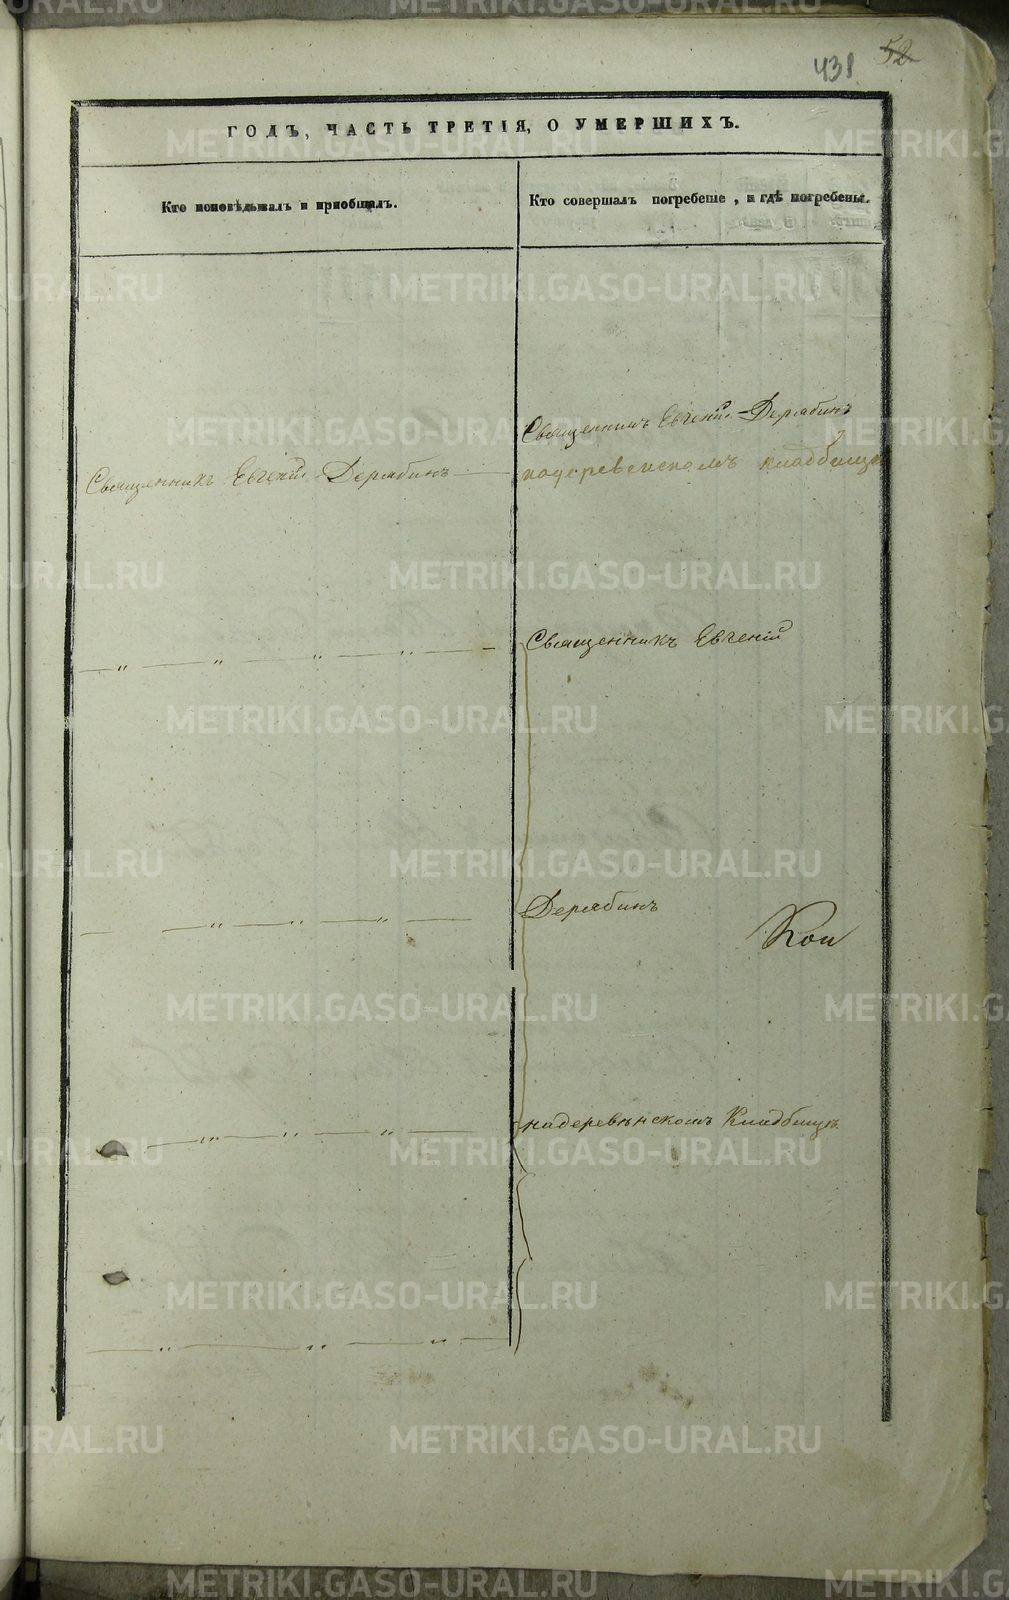 431 52
ГОДЪ, ЧАСТЬ ТРЕТІЯ, О УМЕРШИХЪ.
Кто исповѣдывалъ и пріобщалъ.
Кто совершалъ погребеніе, и гдѣ погребены.
Священникъ Евгеній Дерябинъ
Священникъ Евгеній Дерябинъ
надеревенскомъ кладбищѣ
Священникъ Евгеній
Дерябинъ
Кон
надеревѣнскомъ Кладбищѣ
METRIKI.GASO-URAL.RU